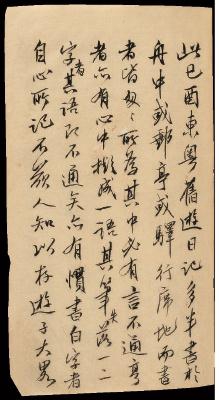 此己酉東粵舊遊日記多半書於
舟中或郵亭或驛行席地而書
者皆匆匆所為其中必有言不通者
者亦有心中擬成一語其筆失落一二
字者其語句不通矣亦有慣書白字者
自心所記不欲人知以存遊子大略